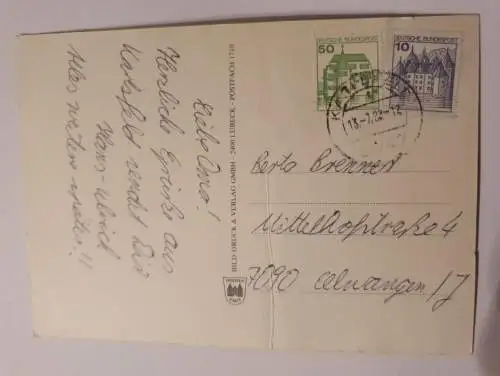 Liebe Oma!
Herzliche Grüße aus
sendet Dir
Hans-Ulrich
Alles weitere später!!
BILD DRUCK & VERLAG GMBH · 2400 LÜBECK · POSTFACH 1710
DEUTSCHE BUNDESPOST
50
DEUTSCHE BUNDESPOST
10
Berta Brenner
Mittelhofstraße 4
7090 Ellwangen/J